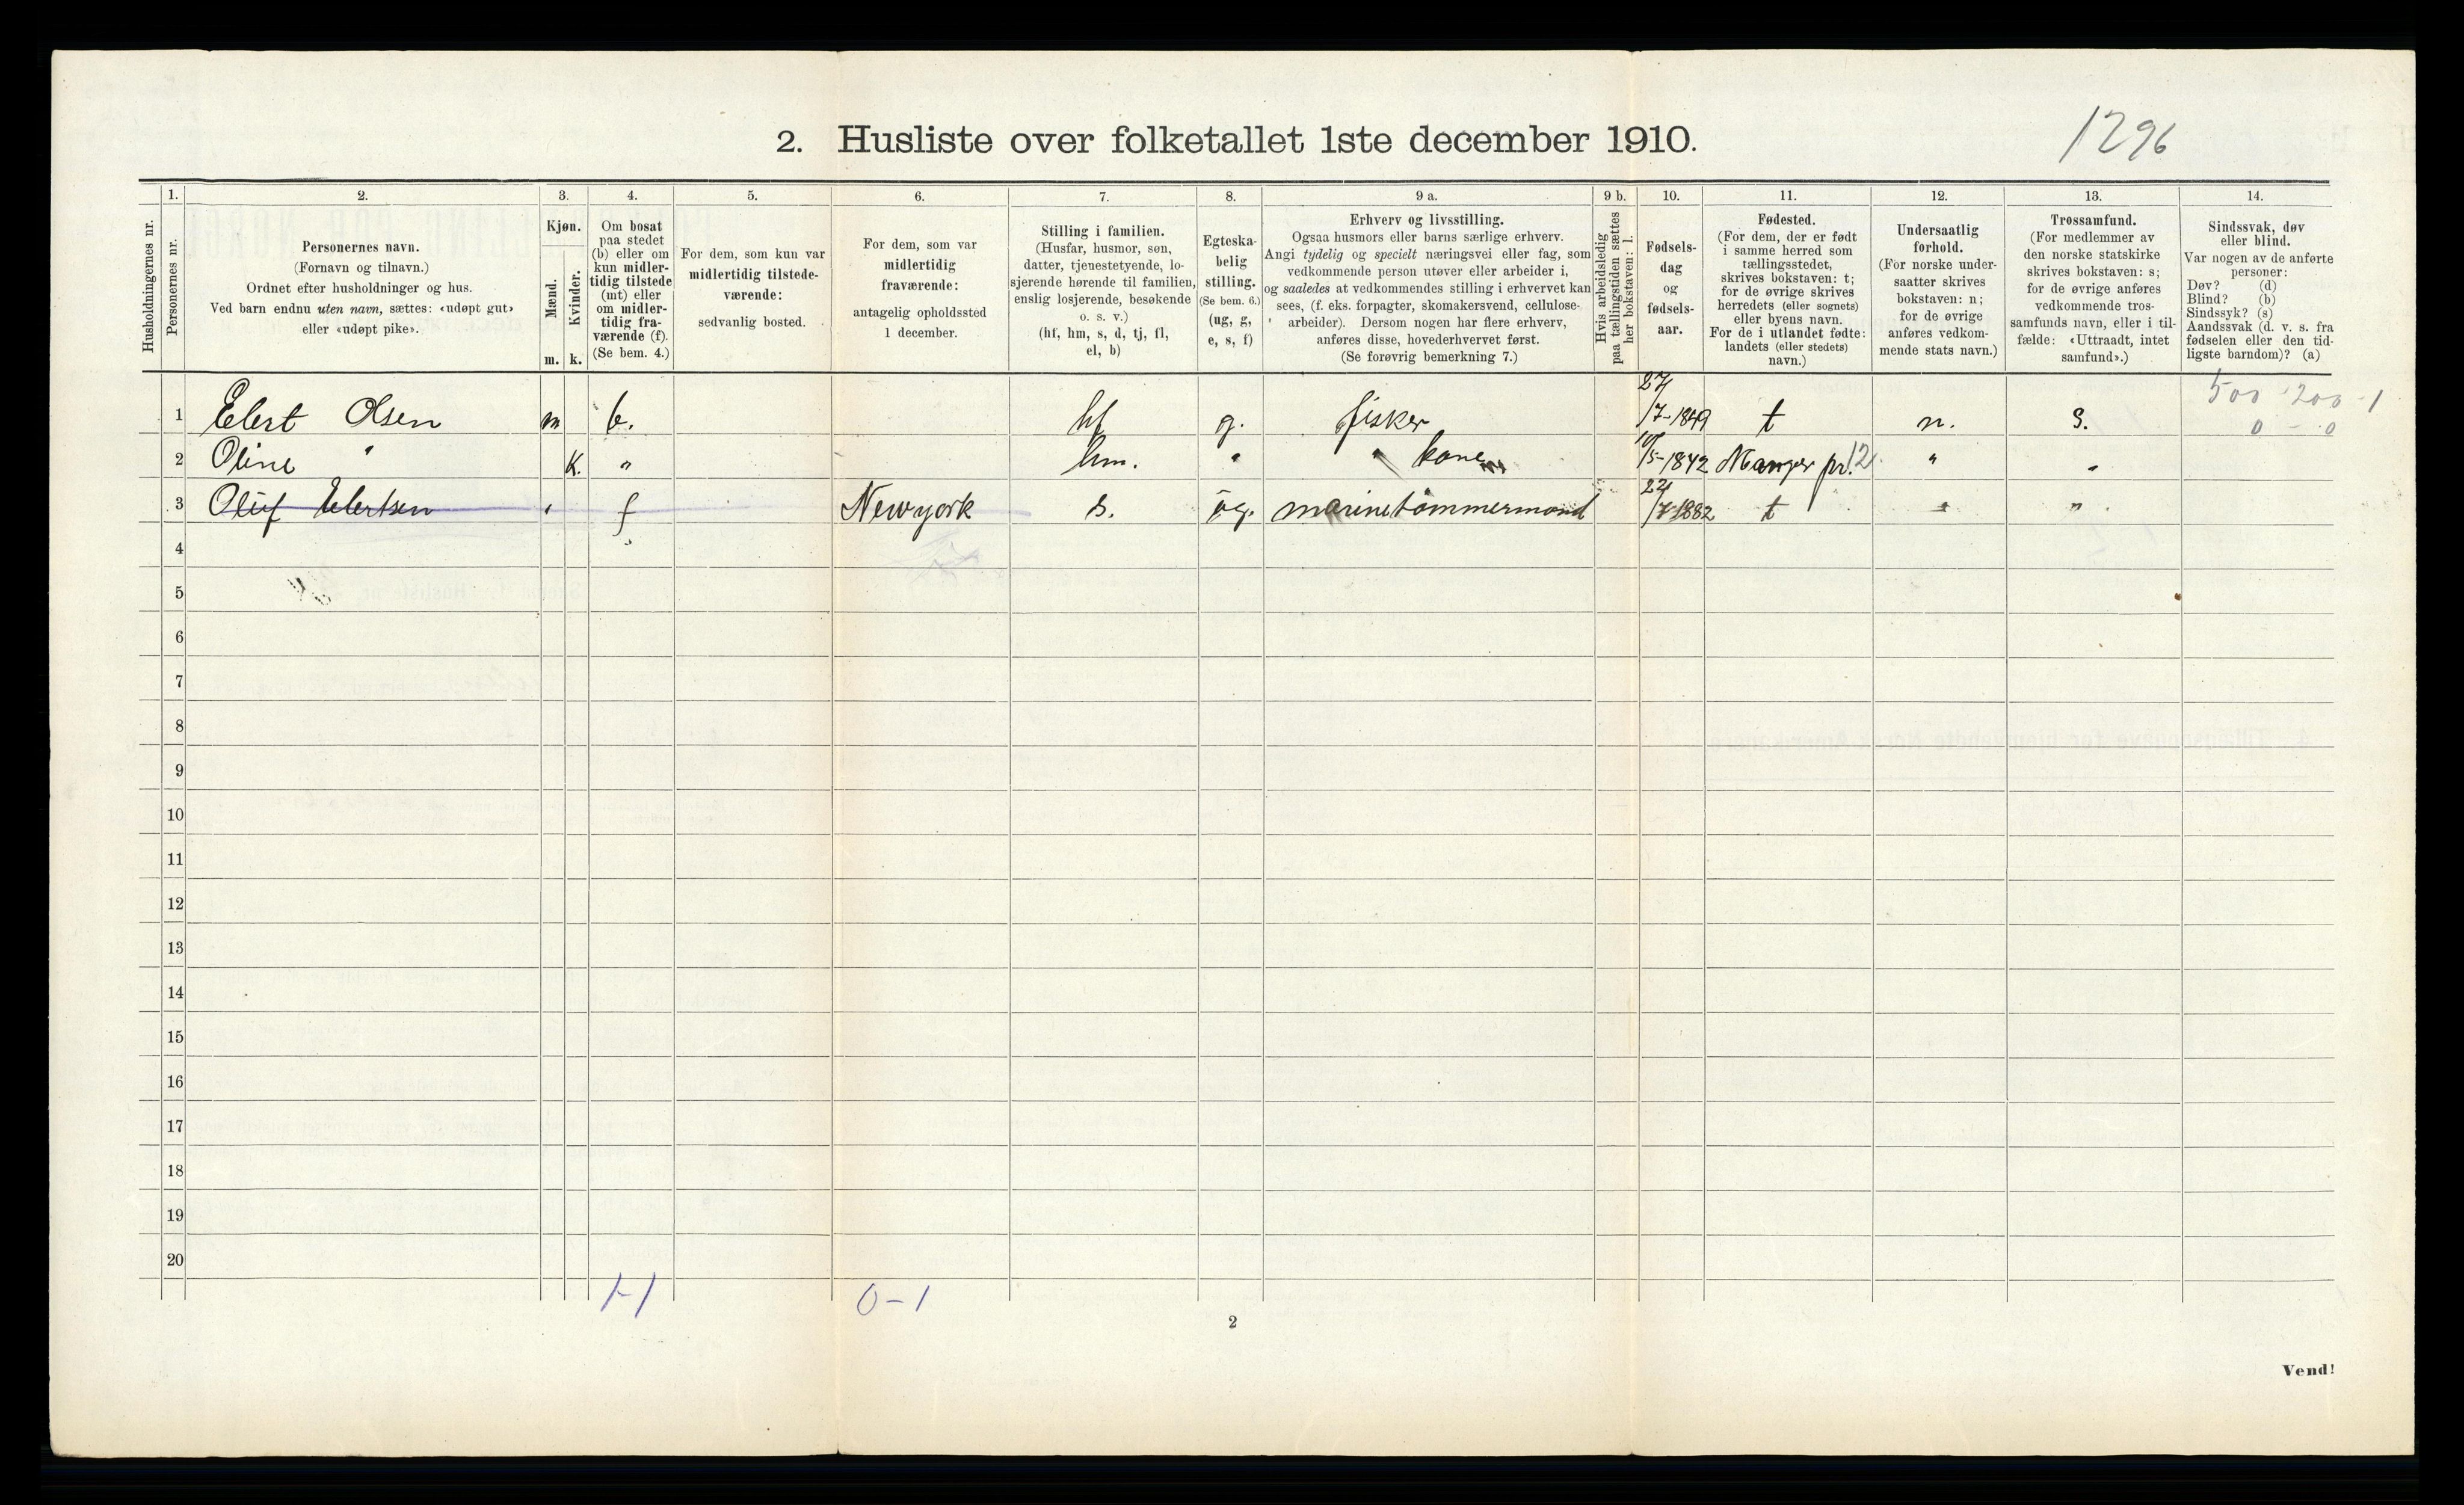 1296
2. Husliste over folketallet 1ste december 1910.
Husholdningernes nr.
1.
Personernes nr.
2.
Personernes navn.
(Fornavn og tilnavn.)
Ordnet efter husholdninger og hus.
Ved barn endnu uten navn, sættes: «udøpt gut»
eller «udøpt pike».
3.
Kjøn.
Mænd.
m.
Kvinder.
k.
4.
Om bosat
paa stedet
(b) eller om
kun midler-
tidig tilstede
(mt) eller
om midler-
tidig fra-
værende (f).
(Se bem. 4.)
5.
For dem, som kun var
midlertidig tilstede-
værende:
sedvanlig bosted.
6.
For dem, som var
midlertidig
fraværende:
antagelig opholdssted
1 december.
7.
Stilling i familien.
(Husfar, husmor, søn,
datter, tjenestetyende, lo-
sjerende hørende til familien,
enslig losjerende, besøkende
o. s. v.)
(hf, hm, s, d, tj, fl,
el, b)
8.
Egteska-
belig
stilling.
(Se bem. 6.)
(ug, g,
e, s, f)
9 a.
Erhverv og livsstilling.
Ogsaa husmors eller barns særlige erhverv.
Angi tydelig og specielt næringsvei eller fag, som
vedkommende person utøver eller arbeider i,
og saaledes at vedkommendes stilling i erhvervet kan
sees, (f. eks. forpagter, skomakersvend, cellulose-
arbeider). Dersom nogen har flere erhverv,
anføres disse, hovederhvervet først.
(Se forøvrig bemerkning 7.)
9 b.
Hvis arbeidsledig
paa tællingstiden sættes
her bokstaven: l.
10.
Fødsels-
dag
og
fødsels-
aar.
11.
Fødested.
(For dem, der er født
i samme herred som
tællingsstedet,
skrives bokstaven: t;
for de øvrige skrives
herredets (eller sognets)
eller byens navn.
For de i utlandet fødte:
landets (eller stedets)
navn.)
12.
Undersaatlig
forhold.
(For norske under-
saatter skrives
bokstaven: n;
for de øvrige
anføres vedkom-
mende stats navn.)
13.
Trossamfund.
(For medlemmer av
den norske statskirke
skrives bokstaven: s;
for de øvrige anføres
vedkommende tros-
samfunds navn, eller i til-
fælde: «Uttraadt, intet
samfund».)
14.
Sindssvak, døv
eller blind.
Var nogen av de anførte
personer:
Døv? (d)
Blind? (b)
Sindssyk? (s)
Aandssvak (d. v. s. fra
fødselen eller den tid-
ligste barndom)? (a)
500 - 200 - 1
0 - 0
1 Elert Olsen m b. hf g. fisker 27/7-1849 t n. S.
2 Oline " K. " hm. " " kone 10/5-1842 Manger pr. 12 " "
3 Oluf Elertsen " f Newyork s. ug. marinetømmermand 22/7-1882 t " "
4
5
6
7
8
9
10
11
12
13
14
15
16
17
18
19
20
1-1
0-1
2
Vend!